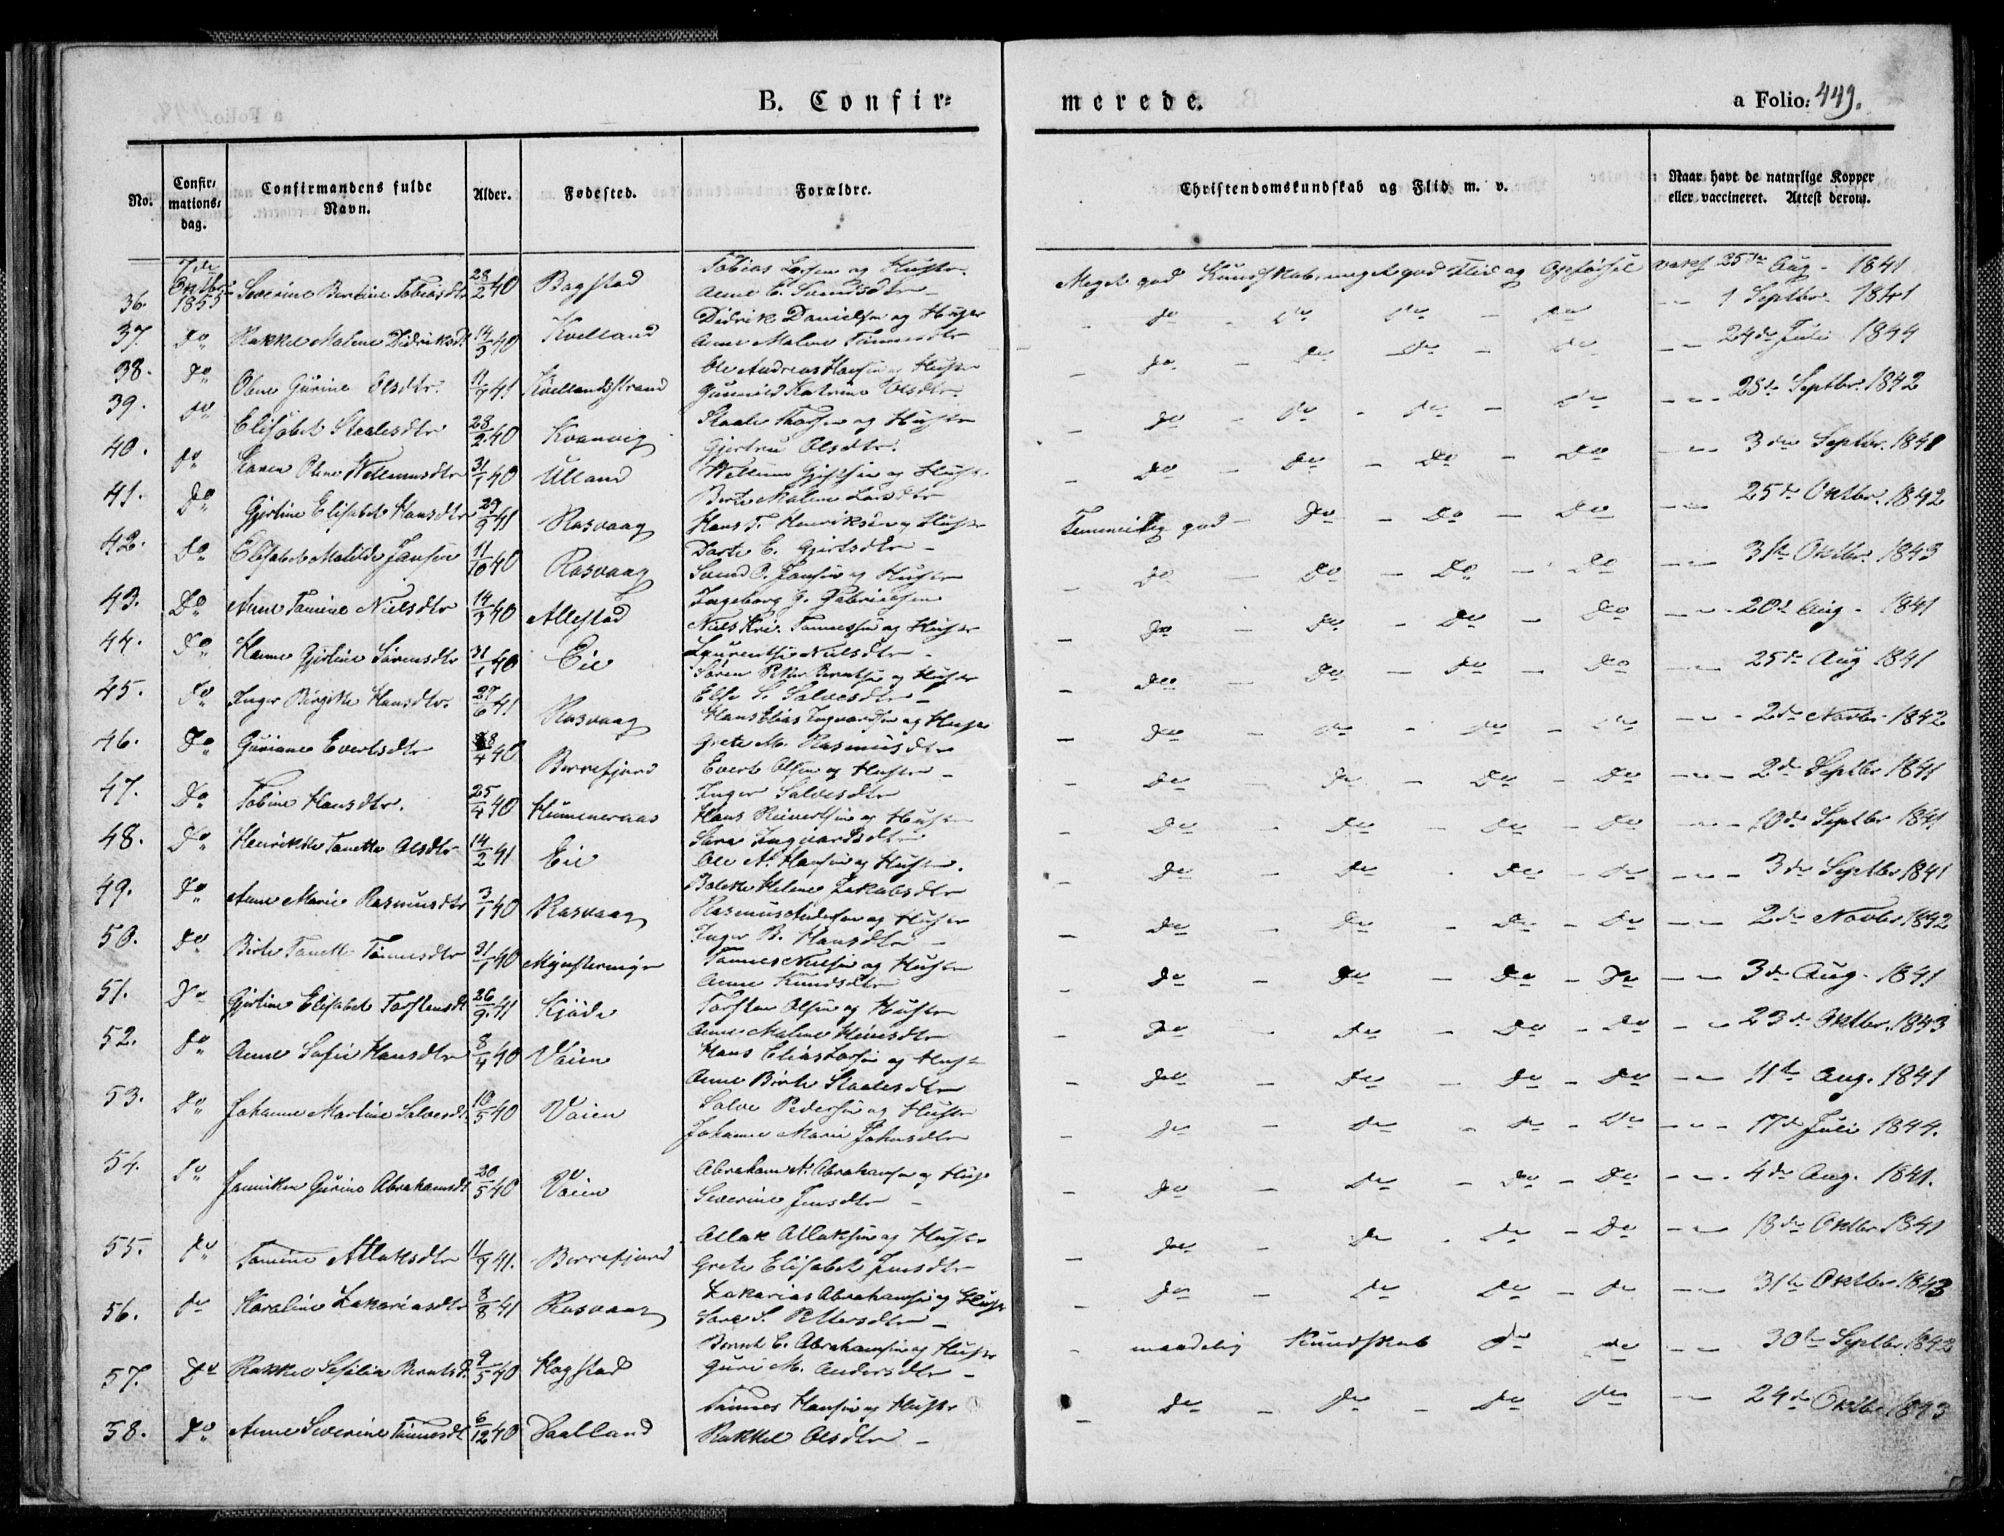 B. Confir-
merede.
a Folio: 449.
No.
Confir-
mations-
dag.
Confirmandens fulde
Navn.
Alder.
Fødested.
Forældre.
Christendomskundskab og Flid m. v.
Naar havt de naturlige Kopper
eller vaccineret. Attest derom.
36. 7de Oktbr 1855 Severine Bertine Tobiasdtr 28/2 40 Bagstad Tobias Larsen og Hustr. Anne E. Svendsdtr Meget god Kundskab, meget god Flid og Opførsel vacc 25de Aug. 1841
37. Do Rakkel Malene Didriksdt 14/3 40 Kvelland Didrik Danielsen og Hustr Anne Malene Tønnesdtr - do - do do - do - 1 Septbr. 1841
38. Do Oline Gurine Olsdtr. 11/7 41 Kvellandsstrand Ole Andreas Hansen og Hustr Gunnild Katrine Olsdtr. do - do - do - do - 24de Juli 1844
39. Do Elisabet Staalesdtr 28/2 40 Kvanvig Staale Torsen og Hustr Gjertru Olsdtr. - do - do - do - do - 25de Septbr. 1842
40. Do Karen Oline Vellumsdtr 31/1 40 Ulland Vellum Gjertsen og Hustr. Berte Malene Larsdtr - do - do - do - do - 3die Septbr. 1841
41. Do Gjertine Elisabet Hansdtr 29/9 41 Rasvaag Hans T. Henriksen og Hustr Dorte E. Gjertsdtr - Temmelig god - Do - Do - Do - 25de Oktbr. 1842
42. Do Elisabet Matilde Jansen 11/10 40 Rasvaag Svend O. Jansen og Hustr Ingeborg G. Gabrielsen Do - Do - Do - Do - 31te Oktbr. 1843
43. Do Anne Tomine Nielsdtr 14/3 40 Allestad Niels Kri. Tønnessen og Hustr Laurentse Nielsdtr - - Do - Do - Do - Do - 20de Aug. 1841
44. Do Hanne Gjertine Sørensdtr 31/1 40 Eie Søren Peter Berntsen og Hustr Else S. Salvesdtr - - Do - Do - Do - Do - 25de Aug 1841
45. Do Inger Birgitte Hansdtr. 27/6 41 Rasvaag Hans Elias Ingvardsen og Hustr Grete M. Rasmusdtr - Do - Do - Do - Do - 2de Novbr. 1842
46. Do Guriane Evertsdtr 28/4 40 Borrefjord Evert Olsen og Hustr - Inger Salvesdtr - Do - Do - Do - Do - 2de Septbr 1841
47. Do Tobine Hansdtr. 25/4 40 Hummeraas Hans Reinertsen og Hustr Sara Ingvardsdtr - Do - Do - Do - Do - 10de Septbr 1841
48. Do Henrikke Tonette Olsdtr 14/2 41 Eie Ole N. Hansen og Hustr. Bolette Helene Jakobsdtr - Do - Do - Do - Do - 3de Septbr 1841
49. Do Anne Marie Rasmusdtr 3/1 40 Rasvaag Rasmus Andersen og Hustr Inger B. Hansdtr - - Do - Do - Do - Do - 2de Novbr 1842
50. Do Birte Tonette Tønnesdtr 31/1 40 Tønnes Nielsen og Hustr Anne Knudsdtr - Do - Do - Do - Do - 3de Aug. 1841
51. Do Gjertine Elisabet Torstensdt 26/9 41 Kjøde Torsten Olsen og Hustr Anne Malene Heinesdtr - Do - Do - Do - Do - 23de Oktbr. 1843
52. Do Anne Sofie Hansdtr 8/4 40 Vaien Hans Elias Larsen og Hustr Anne Birte Staalesdtr - Do - Do - Do - Do - 11te Aug. 1841
53. Do Johanne Martine Salvesdt. 10/5 40 Vaien Salve Pedersen og Hustr Johanne Marie Johnsdtr - Do - Do - Do - Do - 17de Juli 1844.
54. Do Jennikke Gurine Abrahamsdt 20/5 40 Vaien Abraham N. Abrahamsen og Hustr Severine Jensdtr - - Do - Do - Do - Do - 4de Aug. 1841.
55. Do Tomine Atlaksdtr 11/7 41. Borrefjord Atlak Atlaksen og Hustr Grete Elisabet Jensdtr - Do - Do - Do - Do - 18de Oktbr 1841
56. Do Karoline Zakariasdtr 8/8 41 Rasvaag Zakarias Abrahamsen og Hustr Sara S. Pettersdtr - - Do - Do - Do - Do - 31te Oktbr 1843
57. Do Rakkel Sesilie Berntsd. 9/5 40 Hagstad Bernt E. Abrahamsen og Hustr Guri M. Andersdtr - - maadelig Kundskab do do - 30te Septbr. 1842
58. Do Anne Severine Tønnesdt 6/12 40 Daalland Tønnes Hansen og Hustr Rakkel Olsdtr - - Do - Do - Do - Do - 24de Oktbr 1843